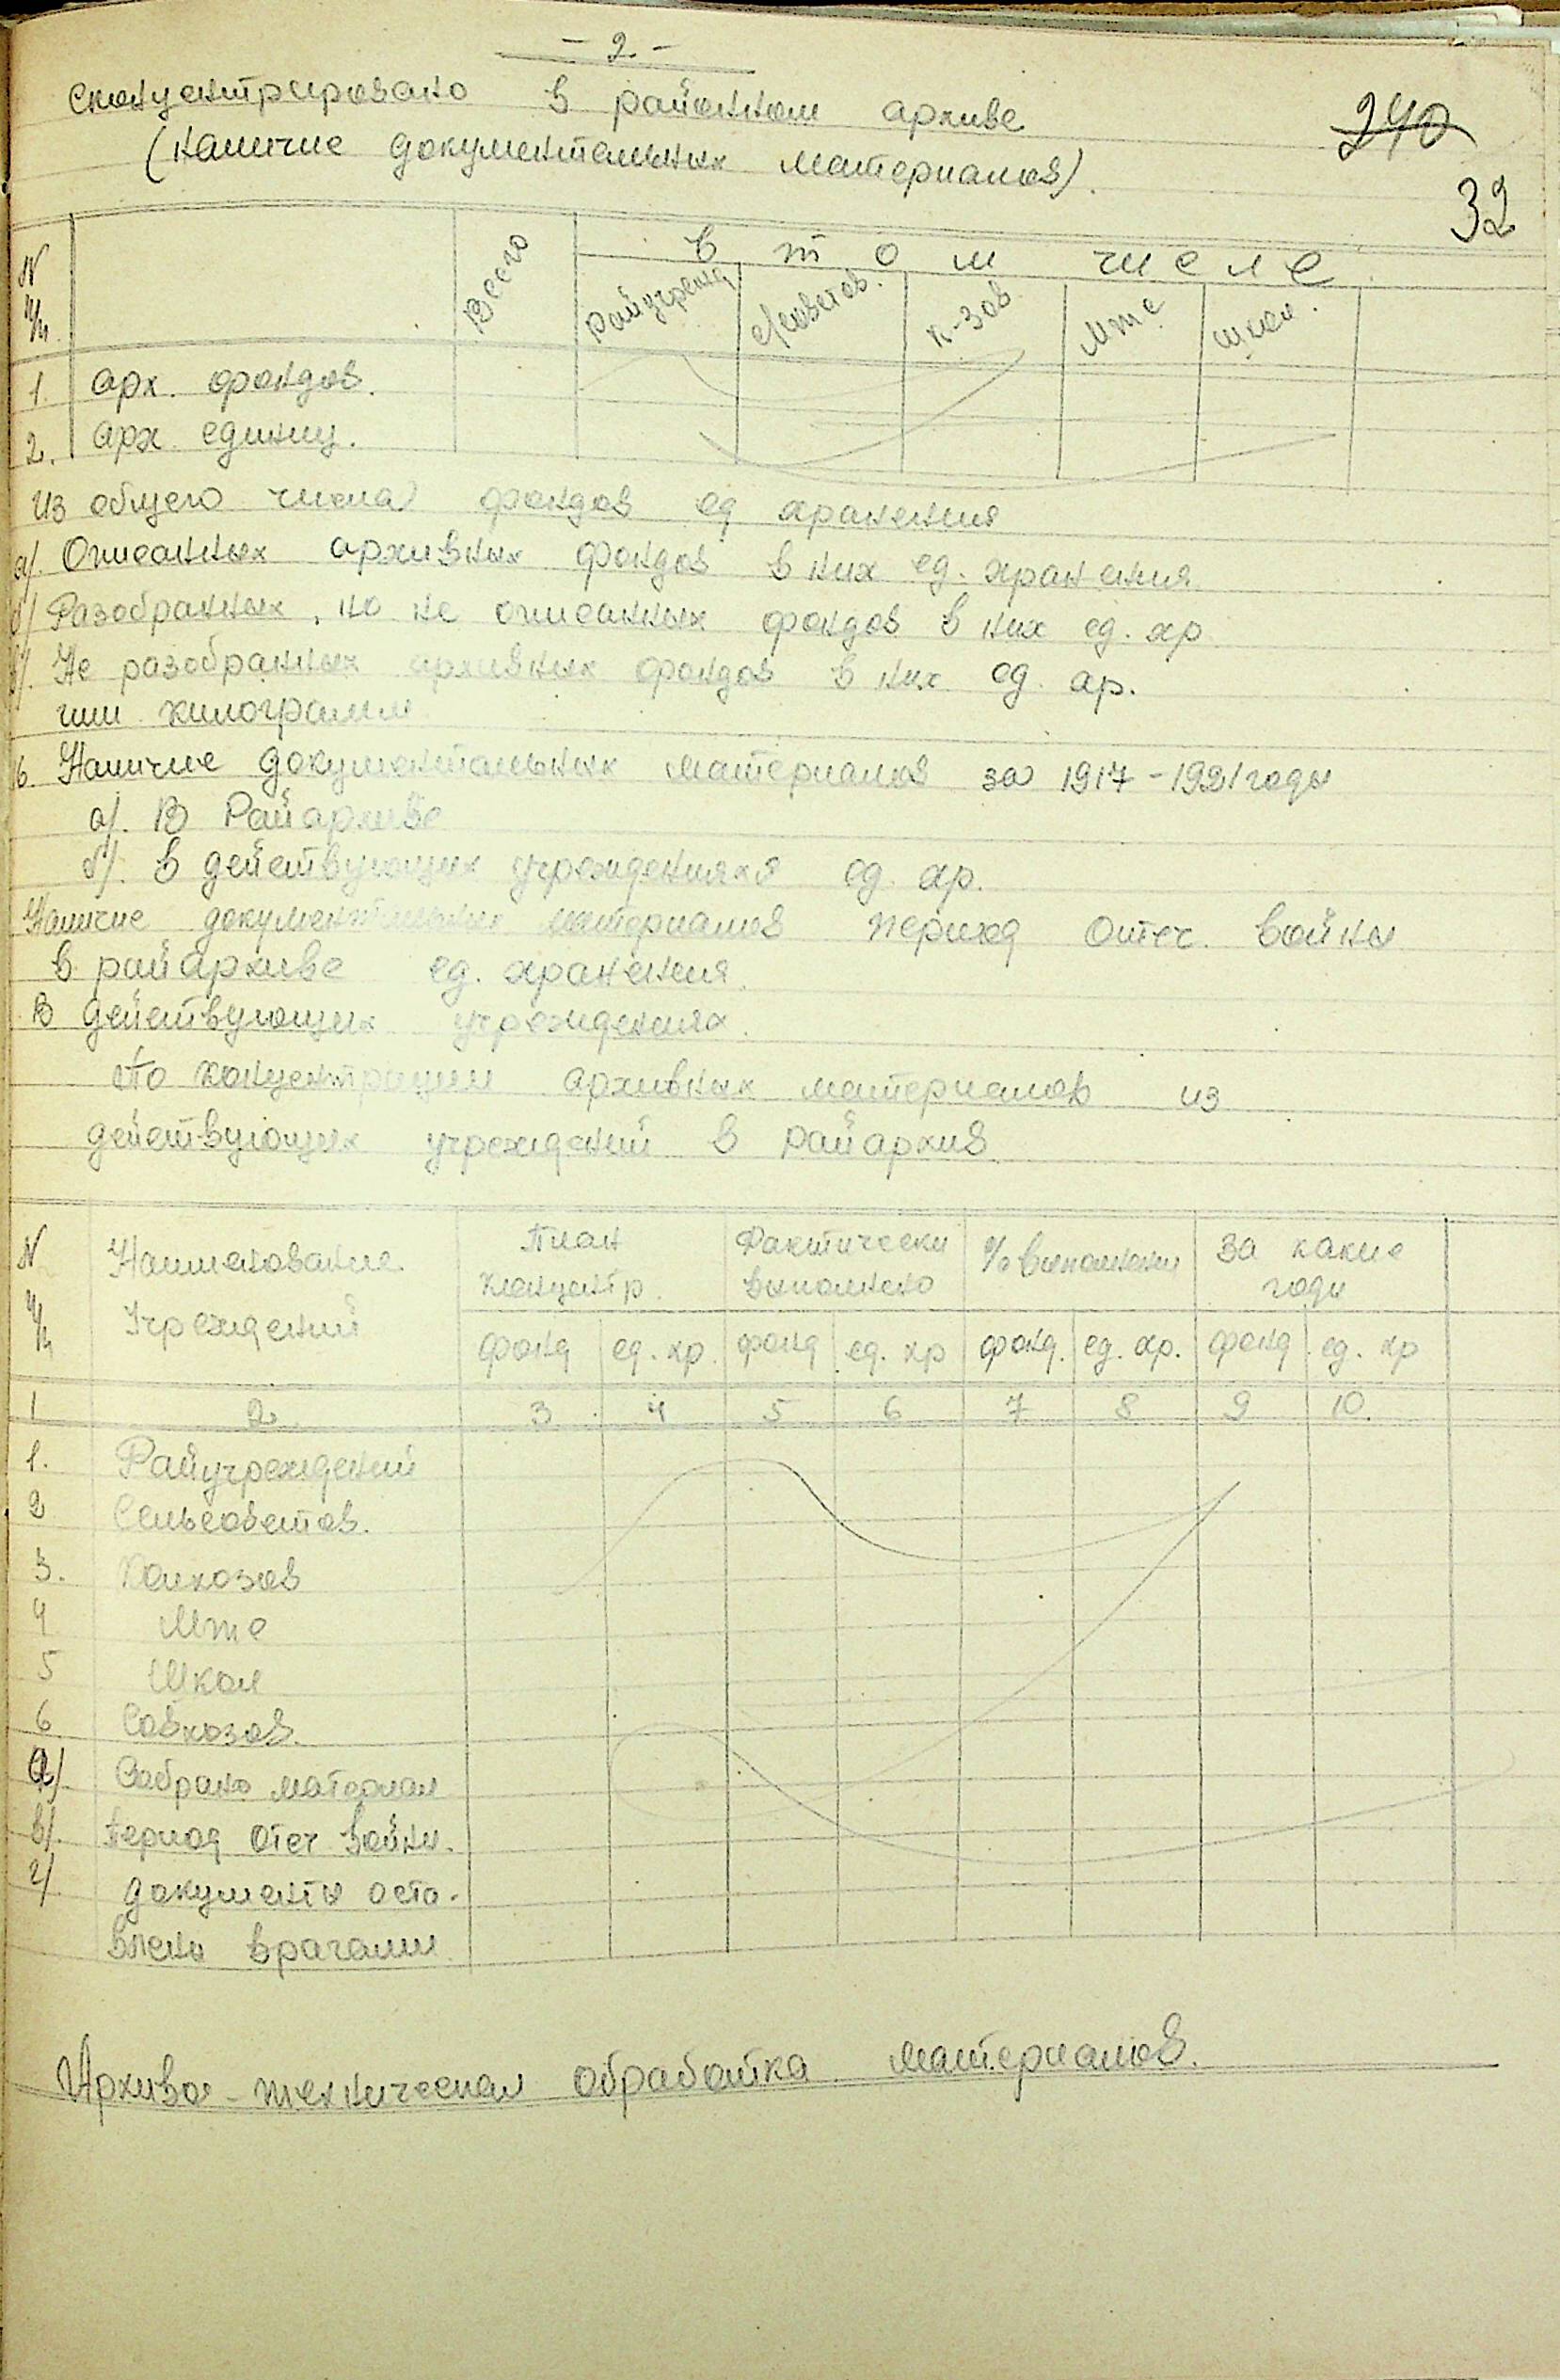 - 2 -
сконцентрировано в районном архиве
240
(наличие документальных материалов).
32
N п/п Всего в том числе
Райучрежд. с/советов. к-зов мтс школ.
1. арх. фондов.
2. арх. единиц.
из общего числа фондов ед хранения
а/. Описанных архивных фондов в них ед. хранения
б/ Разобранных, но не описанных фондов в них ед. хр
в/. Не разобранных архивных фондов в них ед. хр.
или килограмм
6. Наличие документальных материалов за 1917-1921 годы
а/. В Райархиве
б/. в действующих учрежденияхя ед. хр.
Наличие документальных материалов период Отеч. войны
в райархиве ед. хранения.
В действующих учреждениях.
По концентрации архивных материалов из
действующих учреждений в райархив
N п/п Наименование Учреждений План концентр. Фактически выполнено % выполнения За какие годы
фонд ед. хр. фонд ед. хр фонд. ед. хр. фонд ед. хр
1 2. 3. 4 5 6 7 8 9 10.
1. Райучреждений
2 Сельсоветов.
3. Колхозов
4 Мтс
5 Школ
6 Совхозов.
а/. Собрано материал
в/. период Отеч войны.
г/ документы оста-
влены врагами
Архиво-техническая обработка материалов.